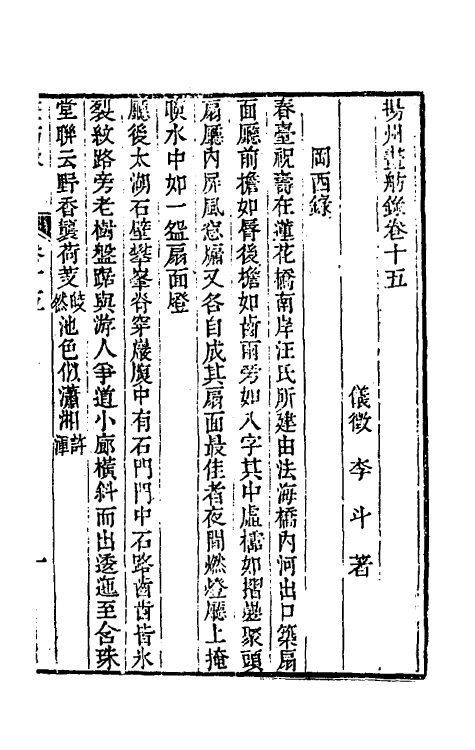 揚州畫舫錄卷十五
儀徵 李斗 著
岡西錄
春臺祝壽在蓮花橋南岸汪氏所建由法海橋內河出口築扇
面廳前檐如脣後檐如齒兩旁如八字其中虛櫺如摺疊聚頭
扇廳內屏風窗牖又各自成其扇面最佳者夜間燃燈廳上掩
映水中如一盌扇面燈
廳後太湖石壁攣峯脊穿巖腹中有石門門中石路齒齒皆冰
裂紋路旁老樹盤踞與游人爭道小廊橫斜而出逶迤至含珠
堂聯云野香襲荷芰皎然池色似瀟湘許渾
卷十五
一